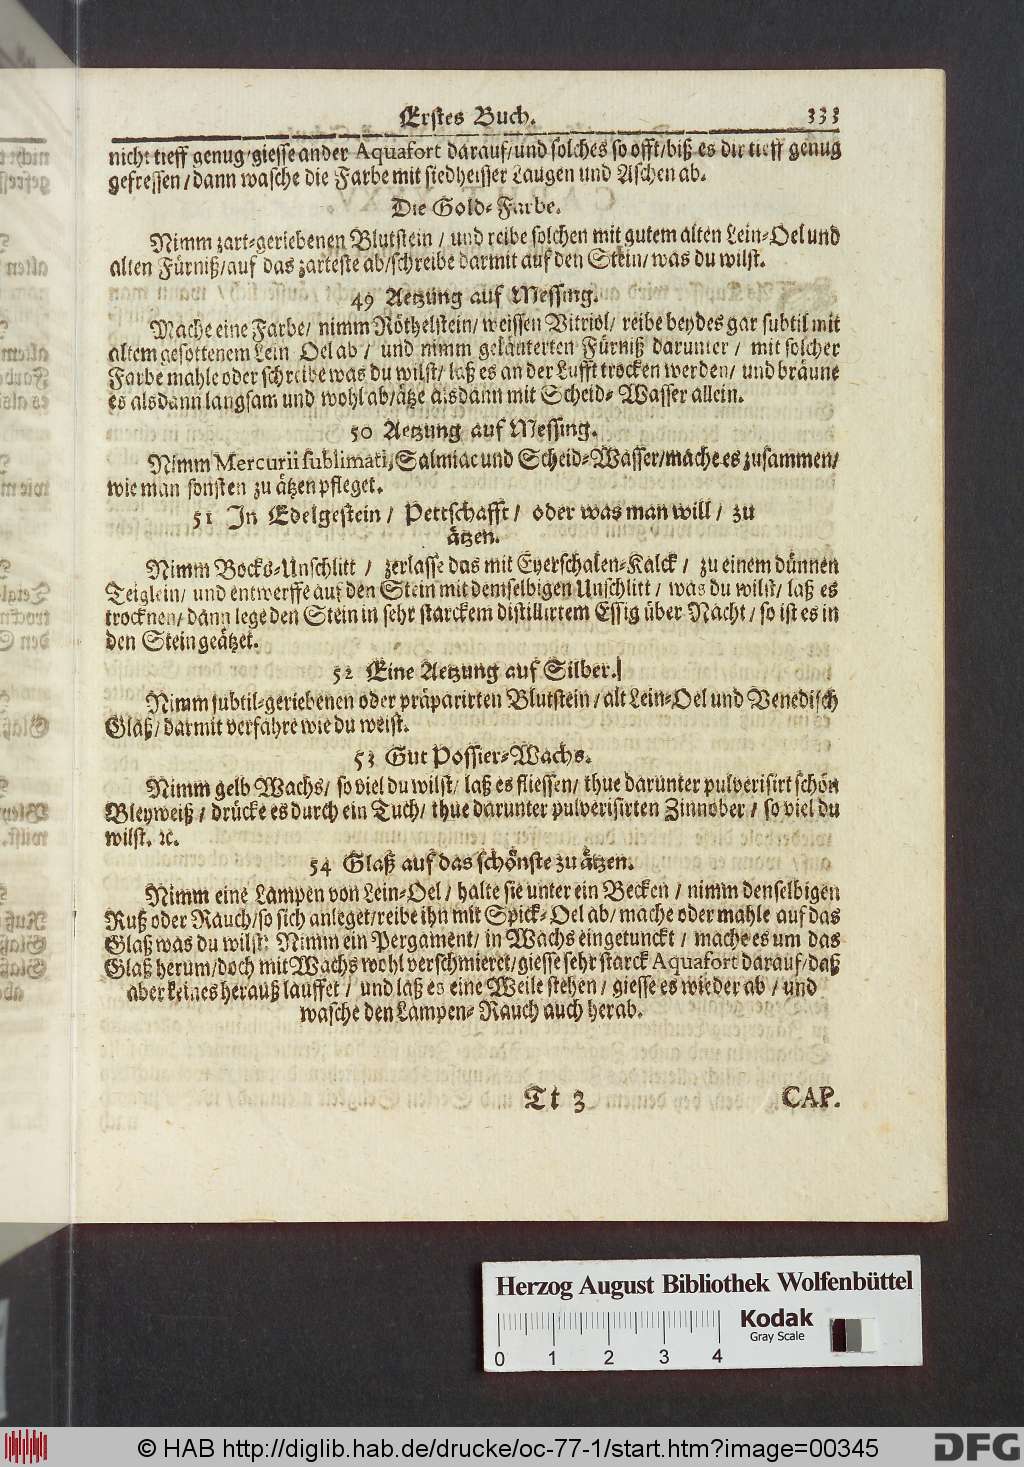 Erstes Buch. 333
nicht tieff genug/giesse ander Aquafort darauf/und solches so offt/biß es dir tieff genug
gefressen/dann wasche die Farbe mit siedheisser Laugen und Aschen ab.
Die Gold-Farbe.
Nimm zart-geriebenen Blutstein/und reibe solchen mit gutem alten Lein-Oel und
alten Fürniß/auf das zarteste ab/schreibe darmit auf den Stein/was du wilst.
49 Aetzung auf Messing.
Mache eine Farbe/nimm Röthelstein/weissen Vitriol/reibe beydes gar subtil mit
altem gesottenem Lein Oel ab/und nimm geläuterten Fürniß darunter/mit solcher
Farbe mahle oder schreibe was du wilst/laß es an der Lufft trocken werden/und bräune
es alsdann langsam und wohl ab/ätze alsdann mit Scheid-Wasser allein.
50 Aetzung auf Messing.
Nimm Mercurii sublimati, Salmiac und Scheid-Wasser/mache es zusammen/
wie man sonsten zu ätzen pfleget.
51 In Edelgestein/Pettschafft/oder was man will/zu
ätzen.
Nimm Bocks-Unschlitt/zerlasse das mit Eyerschalen-Kalck/zu einem dünnen
Teiglein/und entwerffe auf den Stein mit demselbigen Unschlitt/was du wilst/laß es
trocknen/dann lege den Stein in sehr starckem distillirtem Essig über Nacht/so ist es in
den Stein geätzet.
52 Eine Aetzung auf Silber.
Nimm subtil-geriebenen oder präparirten Blutstein/alt Lein-Oel und Venedisch
Glaß/darmit verfahre wie du weist.
53 Gut Possier-Wachs.
Nimm gelb Wachs/so viel du wilst/laß es fliessen/thue darunter pulverisirt schön
Bleyweiß/drücke es durch ein Tuch/thue darunter pulverisirten Zinnober/so viel du
wilst. ꝛc.
54 Glaß auf das schönste zu ätzen.
Nimm eine Lampen von Lein-Oel/halte sie unter ein Becken/nimm denselbigen
Ruß oder Rauch/so sich anleget/reibe ihn mit Spick-Oel ab/mache oder mahle auf das
Glaß was du wilst: Nimm ein Pergament/in Wachs eingetunckt/mache es um das
Glaß herum/doch mit Wachs wohl verschmieret/giesse sehr starck Aquafort darauf/daß
aber keines herauß lauffet/und laß es eine Weile stehen/giesse es wieder ab/und
wasche den Lampen-Rauch auch herab.
Tt 3 CAP.
Herzog August Bibliothek Wolfenbüttel
Kodak
Gray Scale
0 1 2 3 4
© HAB http://diglib.hab.de/drucke/oc-77-1/start.htm?image=00345
DFG